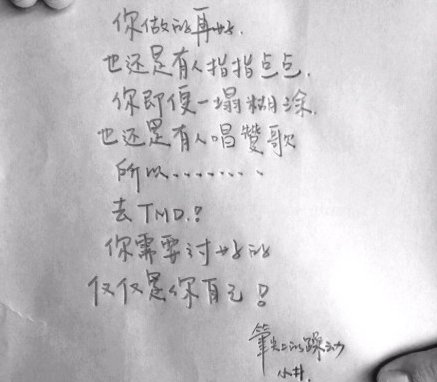 你做的再好.
也还是有人指指点点.
你即便一塌糊涂.
也还是有人唱赞歌
所以........
去TMD.!
你需要讨好的
仅仅是你自己!
笔尖上的躁动
小井.